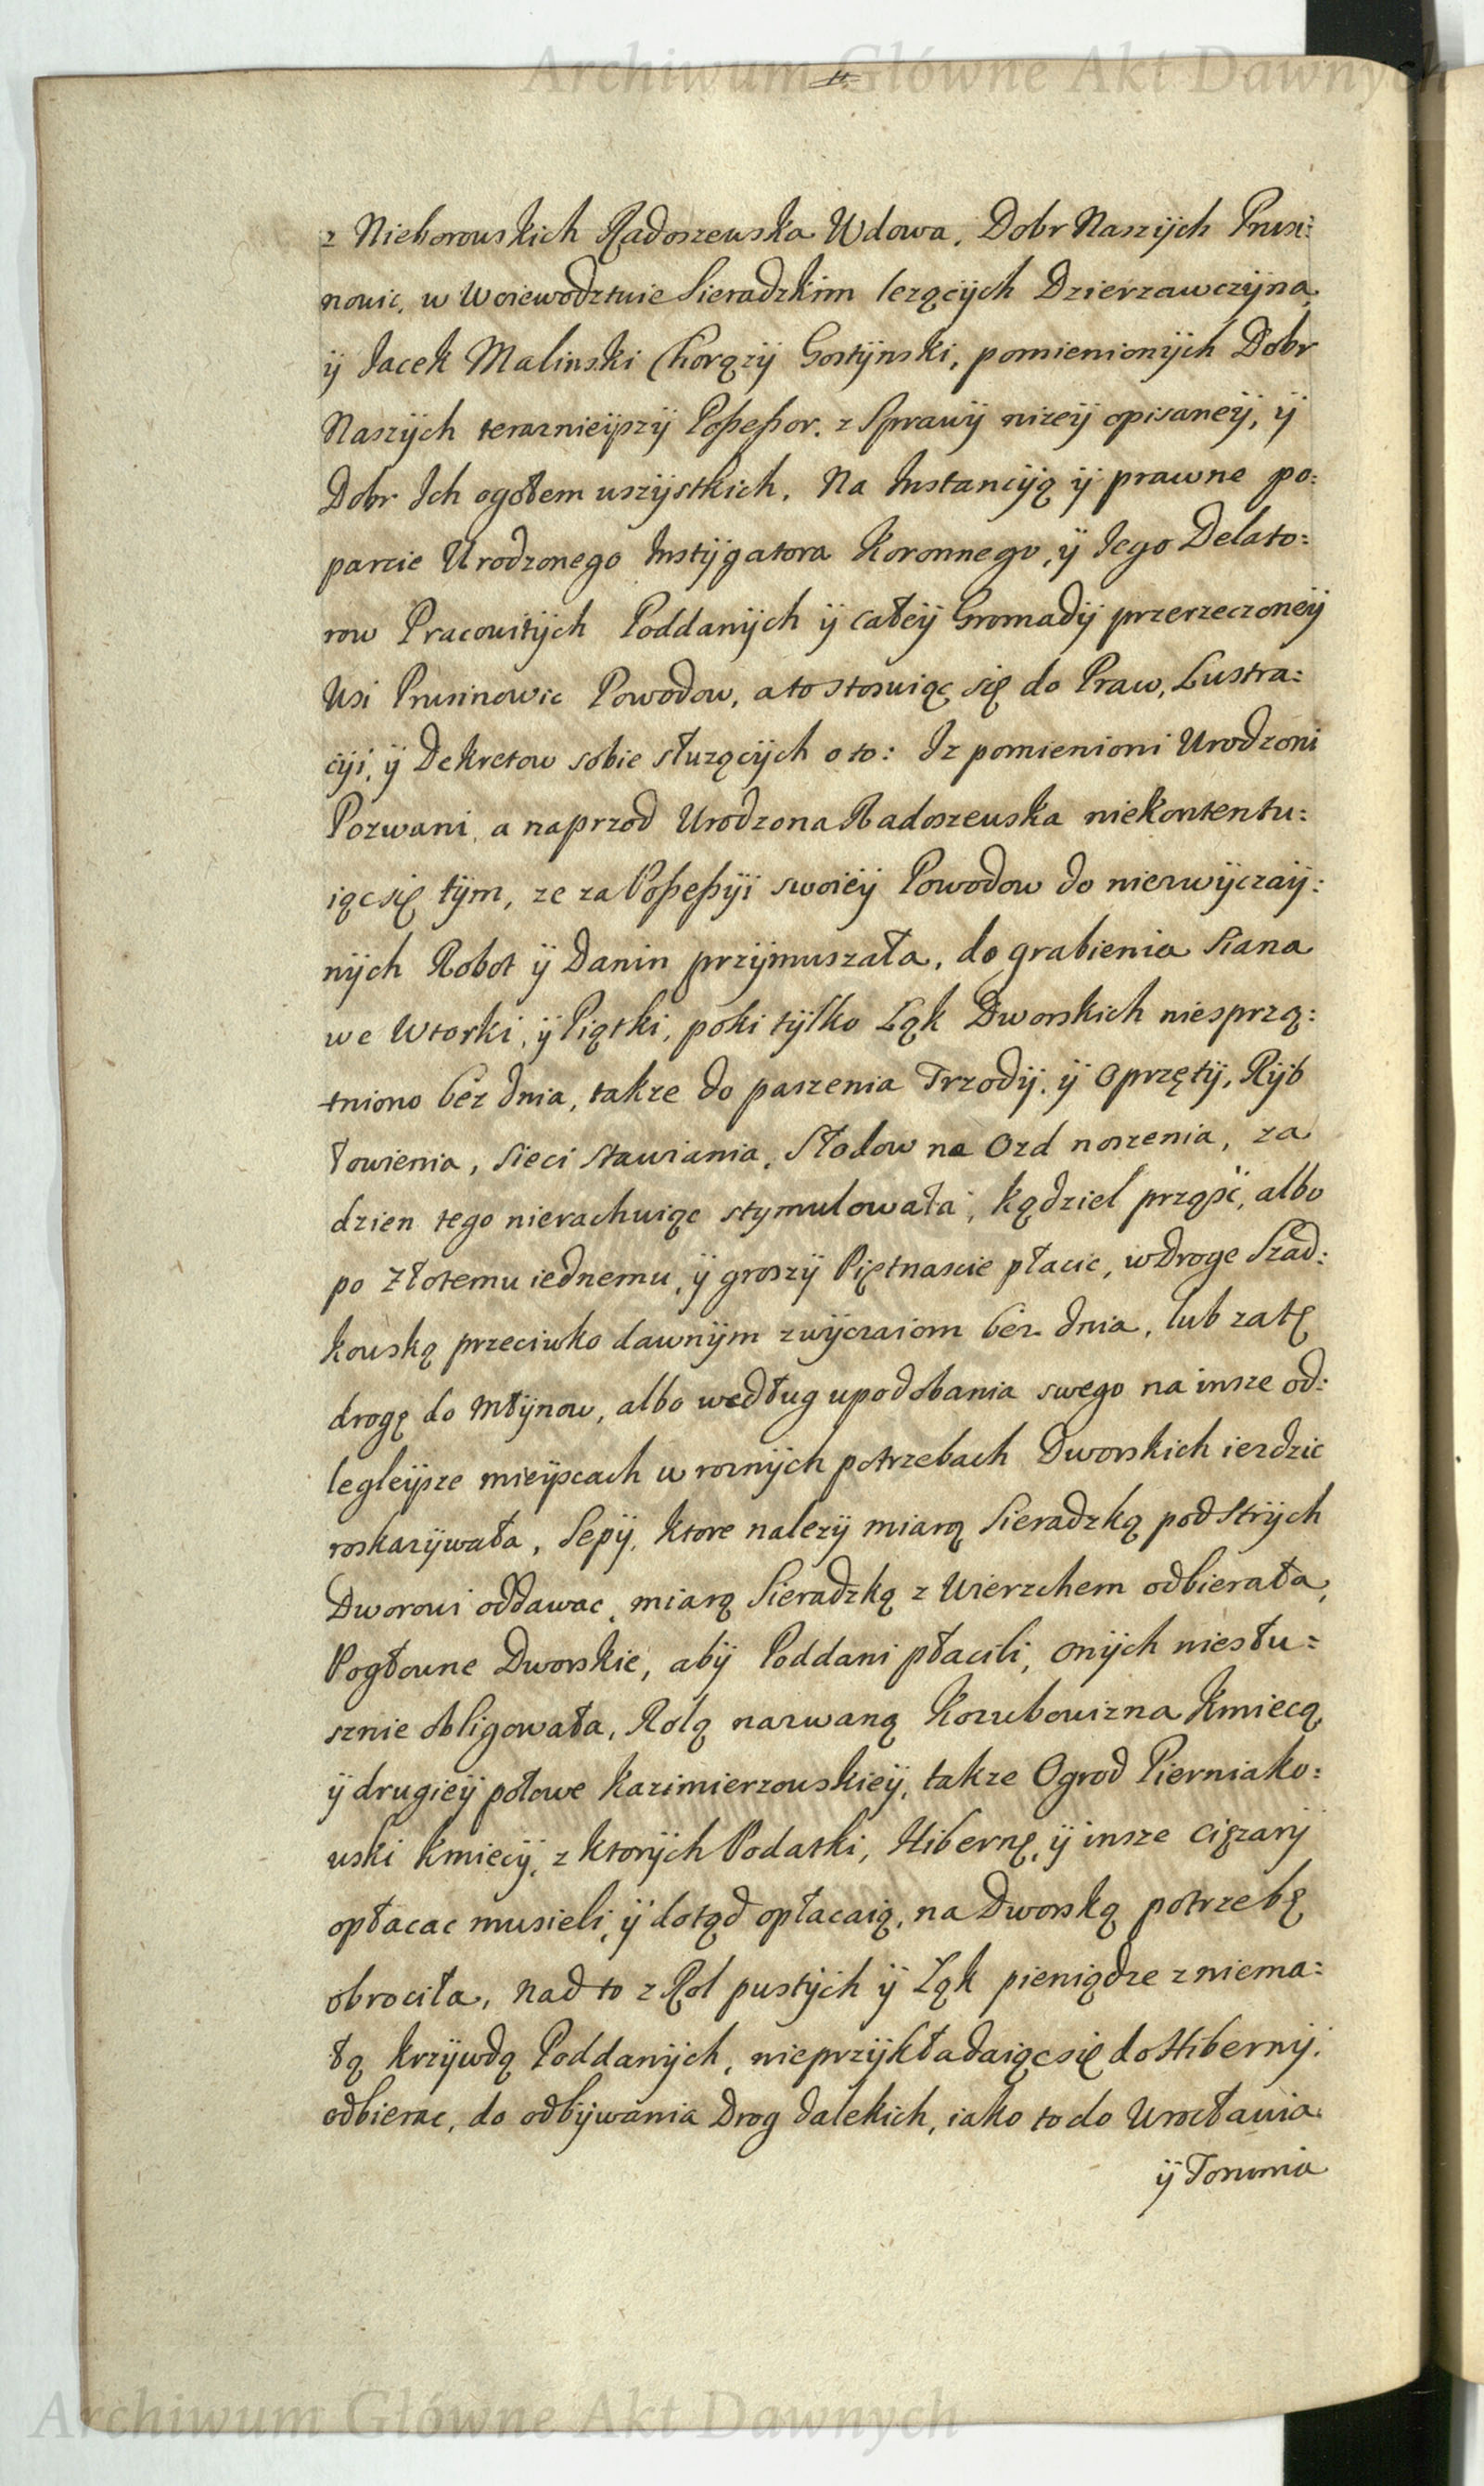 Archiwum Główne Akt Dawnych
z Nieborowskich Radoszewska Wdowa, Dobr Naszÿch Prusi:
nowic, w Woiewodztwie Sieradzkim lezącÿch Dzierzawczÿna,
ÿ Jacek Malinski Chorązÿ Gostÿnski, pomienionÿch Dobr
Naszÿch teraznieÿszÿ Possessor, z Sprawÿ nizeÿ opisaneÿ, ÿ
Dobr Ich ogołem wszÿstkich. Na Instancÿą ÿ prawne po:
parcie Urodzonego Instÿgatora Koronnego, ÿ Jego Delato:
row Pracowitÿch Poddanÿch ÿ całeÿ Gromadÿ przerzeczoneÿ
Wsi Prusinowic Powodow, a to stosuiąc się do Praw, Lustra:
cÿi, ÿ Dekretow sobie słuzącÿch o to: Iz pomienioni Urodzoni
Pozwani, a naprzod Urodzona Radoszewska niekontentu:
iąc się tÿm, ze za Possessÿi swoieÿ Powodow do niezwÿczaÿ:
nÿch Robot ÿ Danin przÿmuszała, do grabienia Siana
we Wtorki, ÿ Piątki, poki tÿlko Łąk Dworskich niesprzą:
tniono bez dnia, takze do paszenia Trzodÿ, ÿ Oprzętÿ, Rÿb
łowienia, Sieci stawiania, Słodow na Ozd noszenia, za
dzien tego nierachuiąc stymulowała, kądziel prząść, albo
po Złotemu iednemu, ÿ groszÿ Piętnascie płacic, w Droge Szad:
kowską przeciwko dawnÿm zwÿczaiom bez dnia, lub zatę
drogę do Młÿnow, albo według upodobania swego na insze od:
legleÿsze mieÿscach w roznÿch potrzebach Dworskich iezdzic
roskazÿwała, Sepÿ, ktore nalezÿ miarą Sieradzką pod Strÿch
Dworowi oddawac, miarą Sieradzką z Wierzchem odbierała,
Pogłowne Dworskie, abÿ Poddani płacili, onÿch niesłu:
sznie obligowała, Rolą nazwaną Kozubowizna Kmiecą,
ÿ drugieÿ połowe Kazimierzowskieÿ, takze Ogrod Pierniako:
wski Kmiecÿ, z ktorÿch Podatki, Hibernę, ÿ insze cięzarÿ
opłacac musieli, ÿ dotąd opłacaią, na Dworską potrzebę
obrociła, nad to z Rol pustÿch ÿ Łąk pieniądze z niema:
łą krzÿwdą Poddanÿch, nieprzÿkładaiąc się do Hibernÿ,
odbierac, do odbÿwania Drog dalekich, iako to do Wrocławia
ÿ Torunia
Archiwum Główne Akt Dawnych